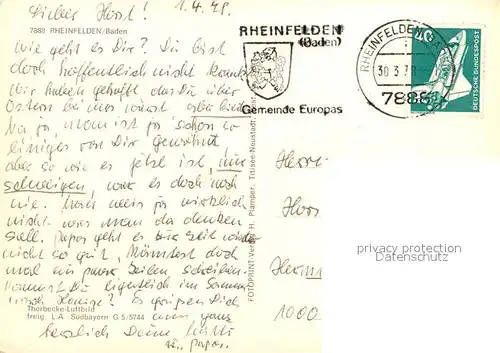 Lieber Horst! 1.4.78.
7888 RHEINFELDEN/Baden
Wie geht es Dir? Du bist
doch hoffentlich nicht krank
Wir haben gehofft das Du über
Ostern bei uns wärst, aber
Na ja man ist ja schon so
einiges von Dir gewohnt,
aber so wie es jetzt ist, nur
schweigen, war es doch noch
nie. Man weis ja wirklich
nicht was man da denken
soll. Papa geht es zur Zeit wieder
nicht so gut, Könntest doch
mal ein paar Zeilen schreiben
Kommst Du eigentlich im Sommer
nach Hause? Es grüßen Dich
Thorbecke-Luftbild
freig. L.A. Südbayern G 5/5744
ganz
herzlich Deine Mutti
u. Papa.
FOTOPRINT-Verlag H. Plamper, Titisee-Neustadt
RHEINFELDEN
(Baden)
Gemeinde Europas
RHEINFELDEN (BADEN)
30.3.78
7888
DEUTSCHE BUNDESPOST
Herrn
Hors
Herm
1000
property protected
watermark
Schutzwasserzeichen